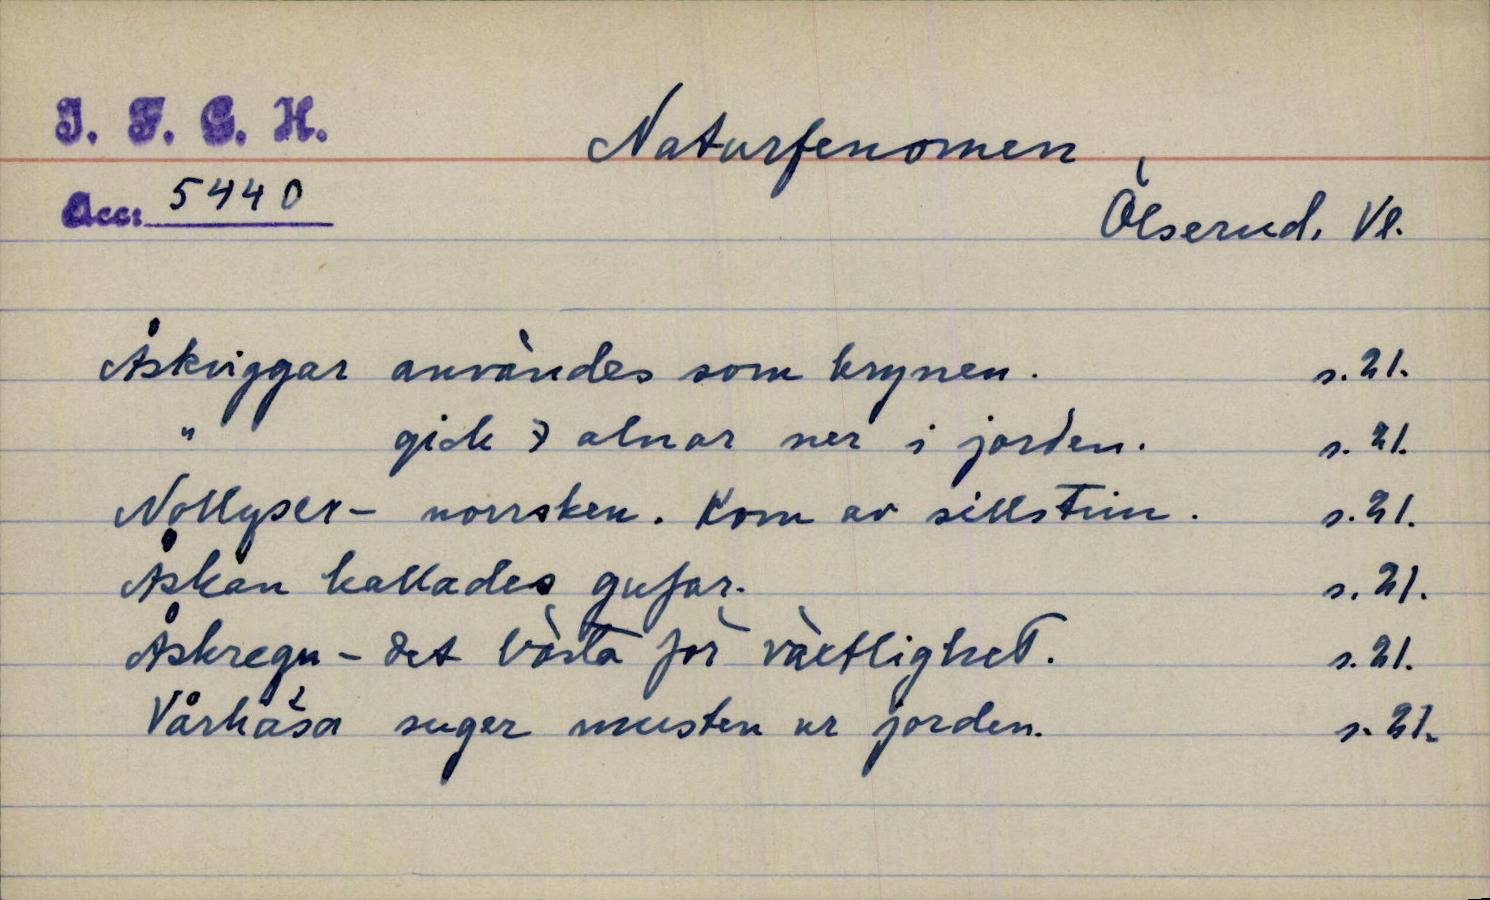 I. F. G. H.
Naturfenomen
Acc: 5440
Ölserud. Vl.
Åskviggar användes som brynen. s. 21.
" gick 7 alnar ner i jorden. s. 21.
Nollyser - norrsken. Kom av sillstim. s. 21.
Åskan kallades gufar. s. 21.
Åskregn - det bästa för växtlighet. s. 21.
Vårhåsa suger musten ur jorden. s. 21.